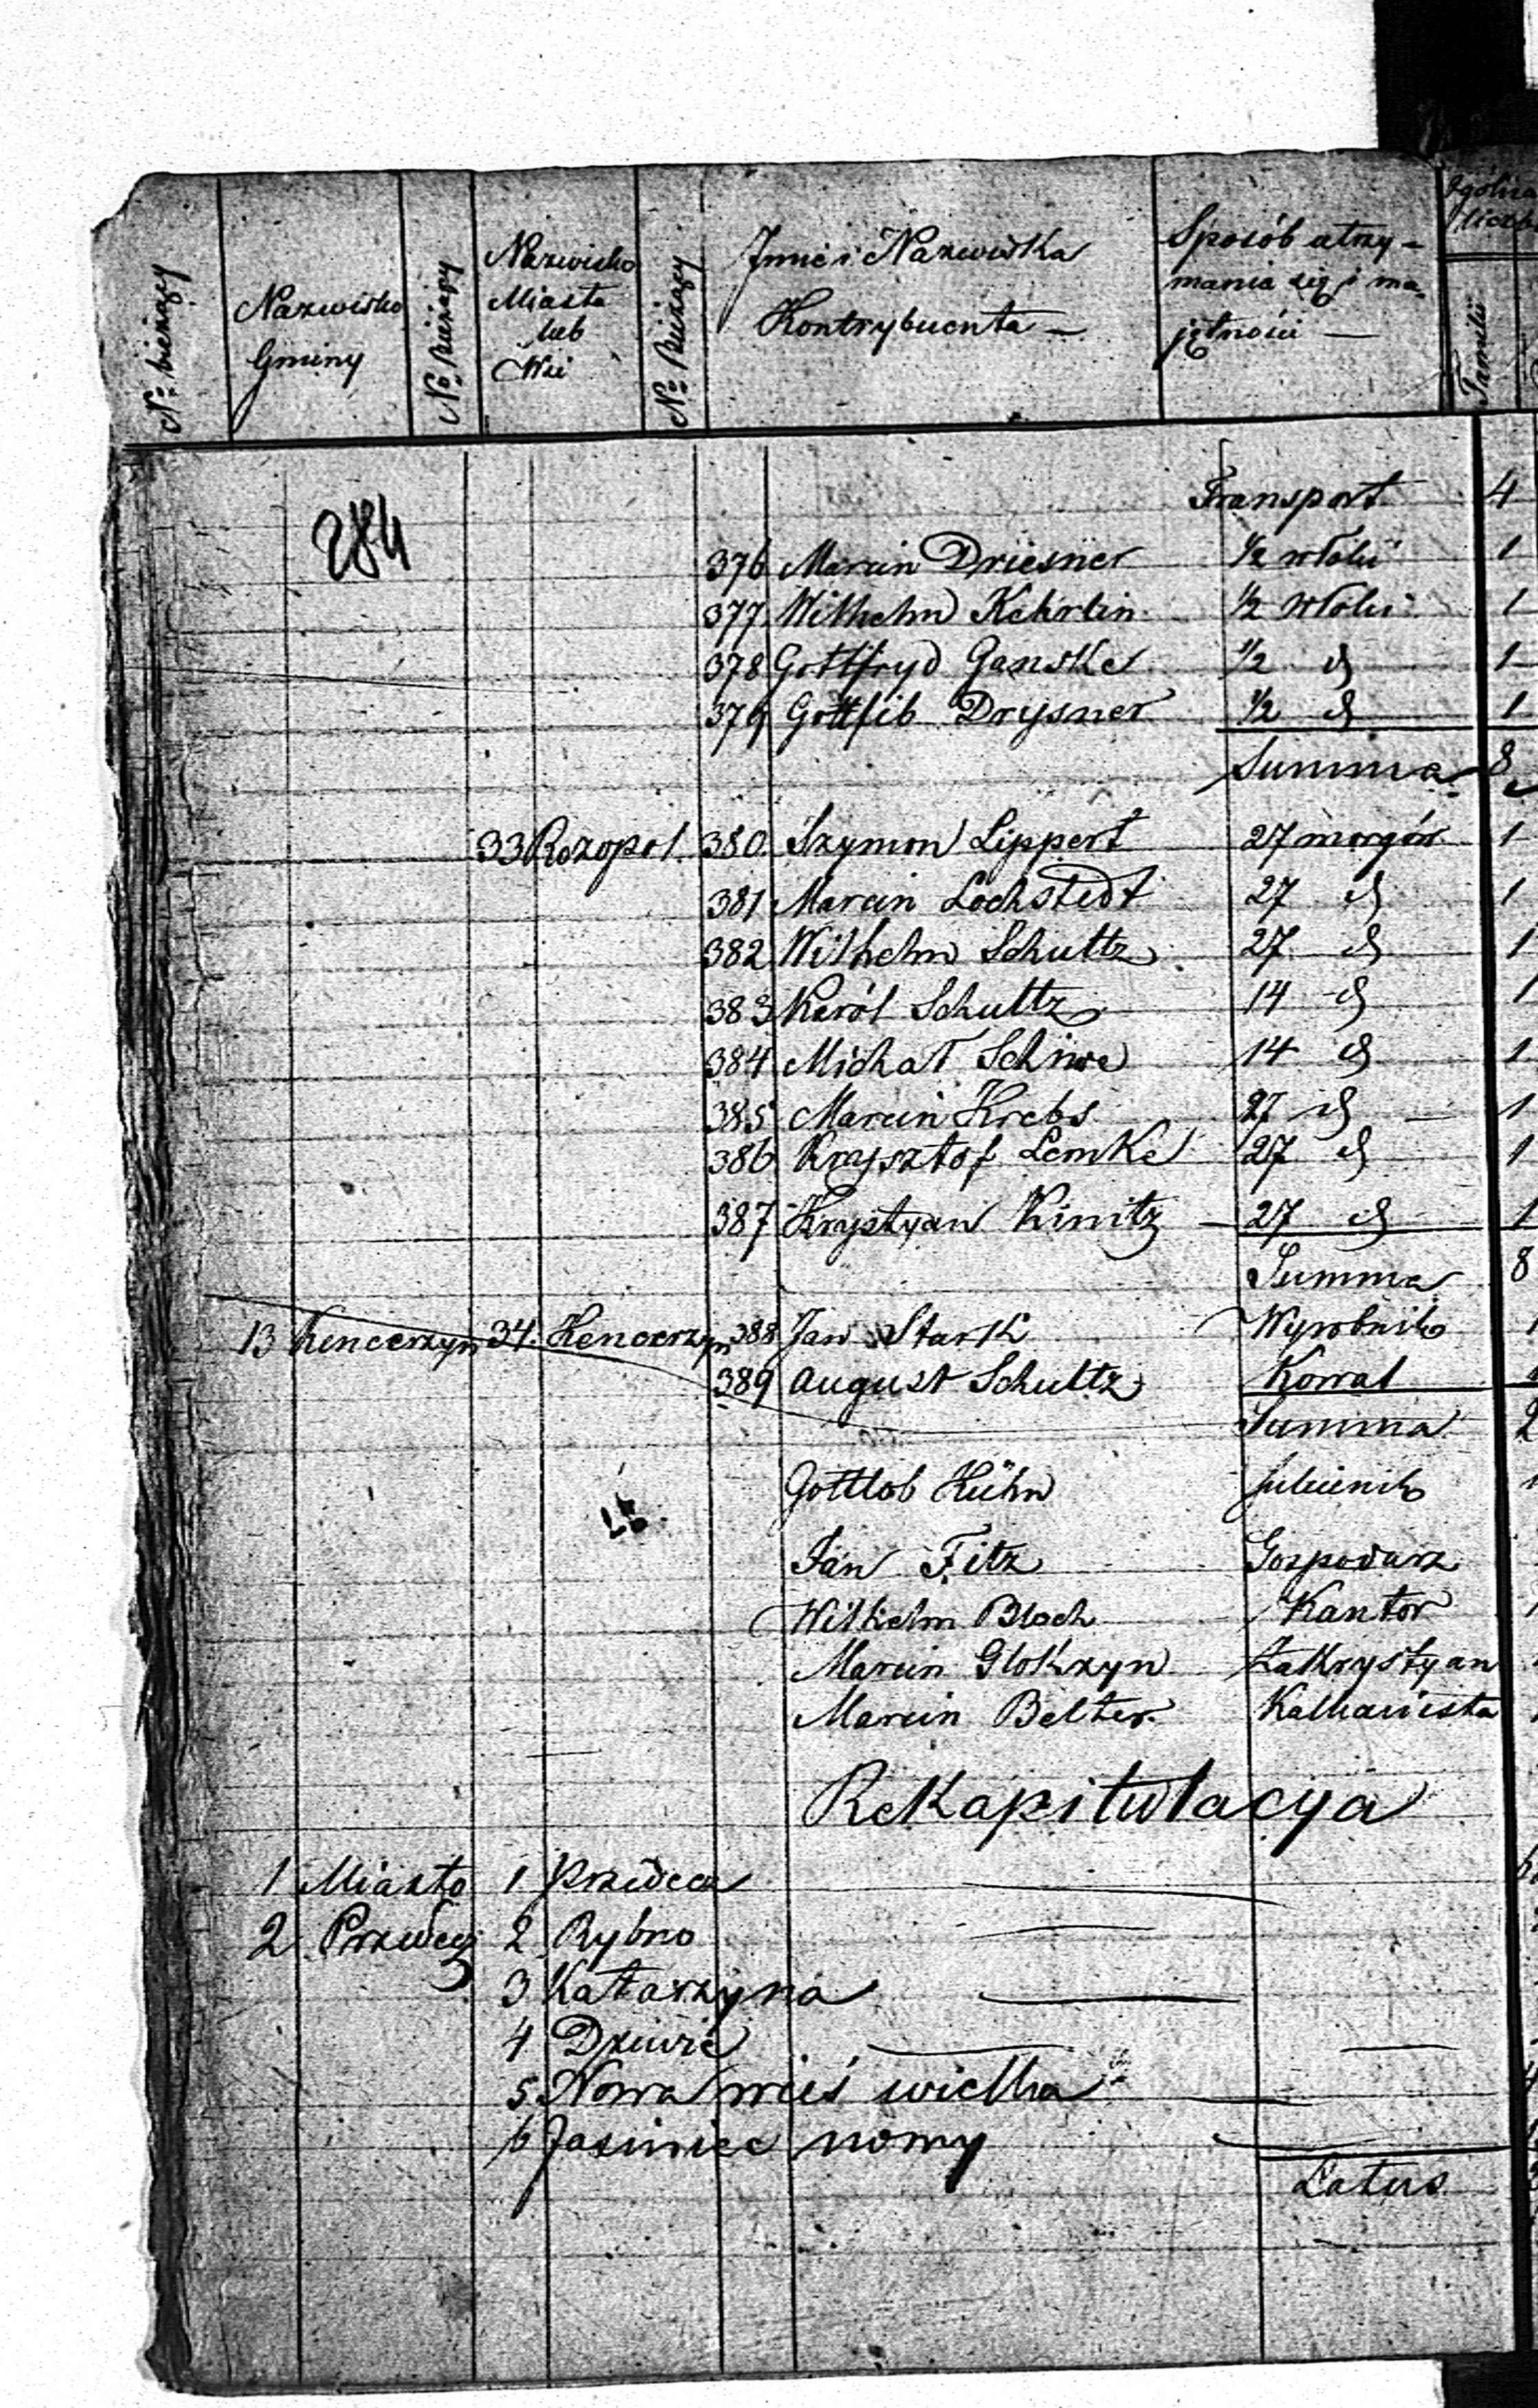 No bieżący
Nazwisko Gminy
No Bieżący
Nazwisko Miasta lub Wsi
No Bieżący
Jmie i Nazwiska Kontrybuenta —
Sposób utrzymania się i majętności —
Familii
284
Transport 4
376 Marcin Driesner 1/2 włoki 1
377 Wilhelm Kehrlin 1/2 Włoki 1
378 Gottfryd Ganske 1/2 d 1
379 Gottlib Drysner 1/2 d 1
Summa 8
33 Rozopol 380 Szymon Lippert 27 morgów 1
381 Marcin Lochstedt 27 d 1
382 Wilhelm Schultz 27 d 1
383 Karól Schultz 14 d 1
384 Michał Schiwe 14 d 1
385 Marcin Krebs 27 d 1
386 Krysztof Lemke 27 d 1
387 Krystyan Kinitz 27 d 1
Summa 8
13 Kencerzyn 34. Kencerzyn 388 Jan Stark Wyrobnik 1
389 August Schultz Kowal
Summa 2
Gottlob Kühn
Jan Fitz Gospodarz
Wilhelm Bloch Kantor
Marcin Glokzyn Zakrystyan
Marcin Belter
Rekapitulacya
1 Miasto 1 Przedecz
2 Przedecz 2 Rybno
3 Katarzyna
4 Dziwie
5 Nowa wieś wielka
6 Jasiniec nowy
Latus